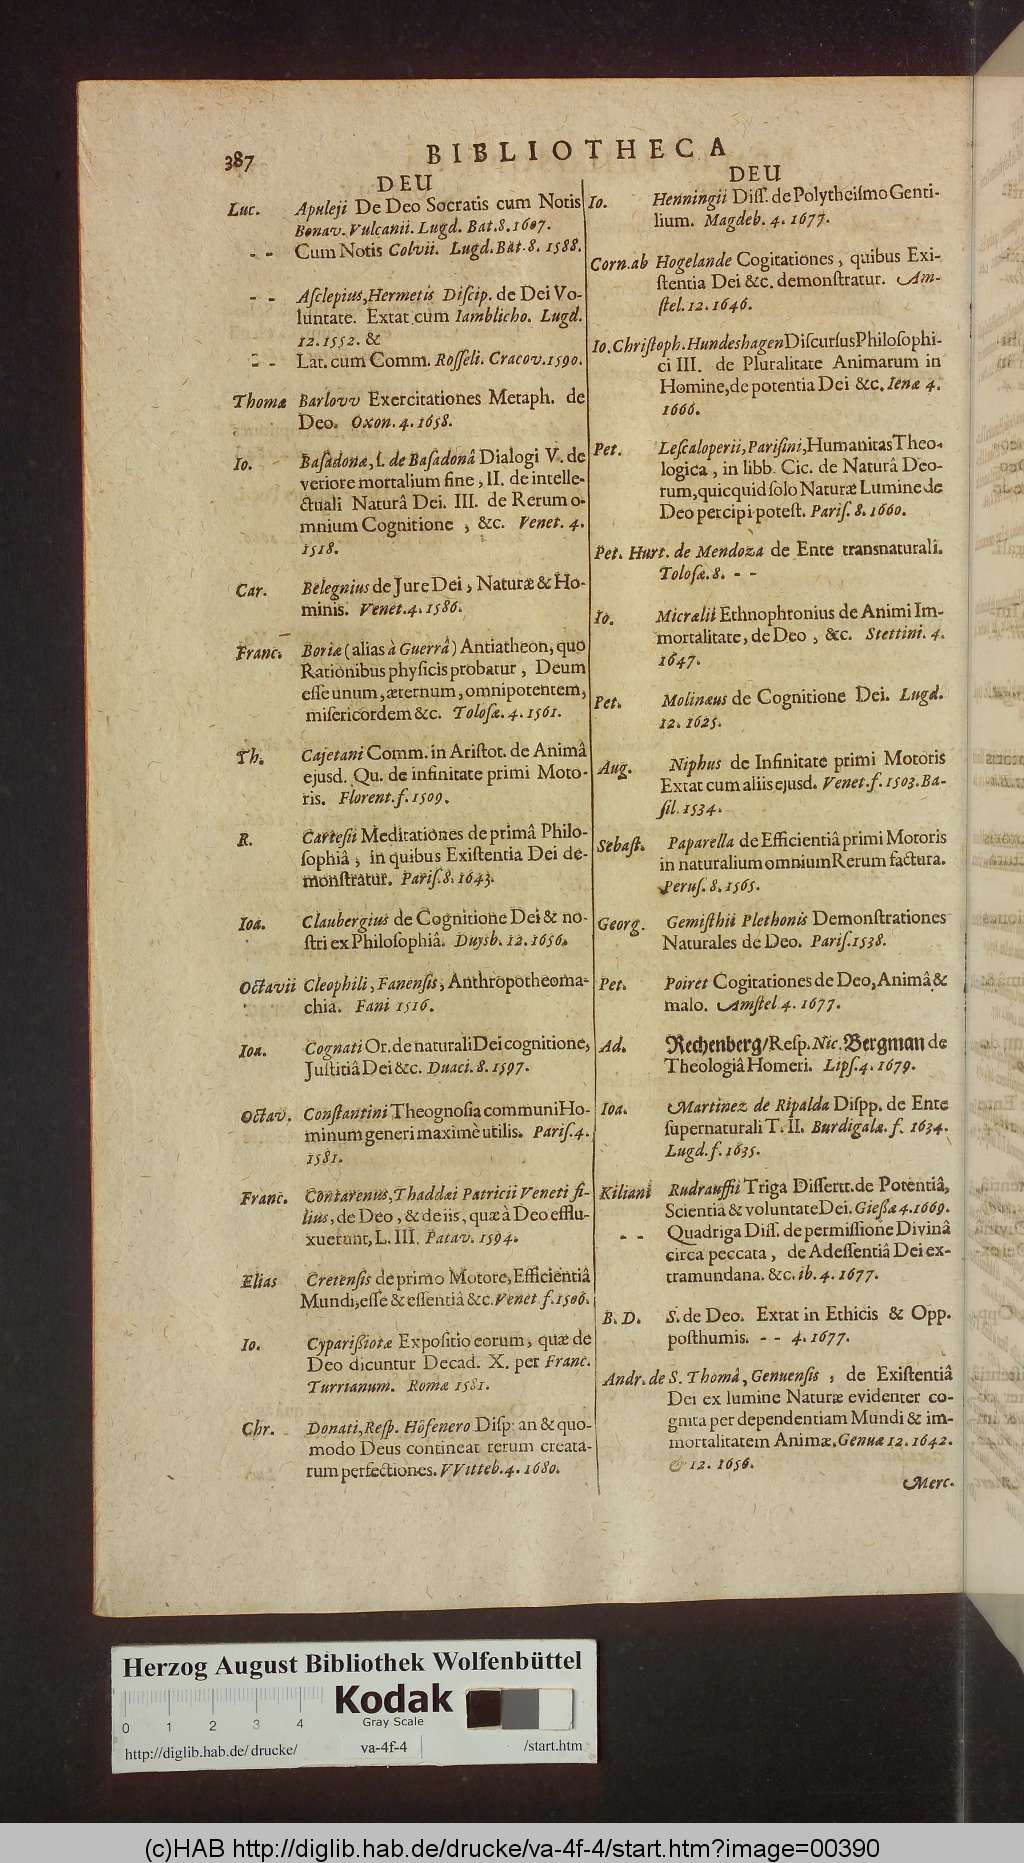 387
BIBLIOTHECA
DEU
Luc. Apuleji De Deo Socratis cum Notis
Bonav. Vulcanii. Lugd. Bat. 8. 1607.
- - Cum Notis Colvii. Lugd. Bat. 8. 1588.
- - Aſclepius, Hermetis Diſcip. de Dei Vo-
luntate. Extat cum Iamblicho. Lugd.
12. 1552. &
- - Lat. cum Comm. Roſſeli. Cracov. 1590.
Thomæ Barlovv Exercitationes Metaph. de
Deo. Oxon. 4. 1658.
Io. Baſadonæ, ſ. de Baſadonâ Dialogi V. de
veriore mortalium fine, II. de intelle-
ctuali Naturâ Dei. III. de Rerum o-
mnium Cognitione, &c. Venet. 4.
1518.
Car. Belegnius de Jure Dei, Naturæ & Ho-
minis. Venet. 4. 1586.
Franc. Boriæ (alias à Guerrâ) Antiatheon, quo
Rationibus phyſicis probatur, Deum
eſſe unum, æternum, omnipotentem,
miſericordem &c. Toloſæ. 4. 1561.
Th. Cajetani Comm. in Ariſtot. de Animâ
ejusd. Qu. de infinitate primi Moto-
ris. Florent. f. 1509.
R. Carteſii Meditationes de primâ Philo-
ſophiâ, in quibus Exiſtentia Dei de-
monſtratur. Pariſ. 8. 1643.
Ioa. Claubergius de Cognitione Dei & no-
ſtri ex Philoſophiâ. Duysb. 12. 1656.
Octavii Cleophili, Fanenſis, Anthropotheoma-
chia. Fani 1516.
Ioa. Cognati Or. de naturali Dei cognitione,
Juſtitiâ Dei &c. Duaci. 8. 1597.
Octav. Conſtantini Theognoſia communi Ho-
minum generi maximè utilis. Pariſ. 4.
1581.
Franc. Contarenus, Thaddæi Patricii Veneti fi-
lius, de Deo, & de iis, quæ à Deo efflu-
xuerunt, L. III. Patav. 1594.
Elias Cretenſis de primo Motore, Efficientiâ
Mundi, eſſe & eſſentiâ &c. Venet f. 1506.
Io. Cypariſſiotæ Expoſitio eorum, quæ de
Deo dicuntur Decad. X. per Franc.
Turrianum. Romæ 1581.
Chr. Donati, Reſp. Höfenero Diſp. an & quo-
modo Deus contineat rerum creata-
rum perfectiones. VVitteb. 4. 1680.
DEU
Io. Henningii Diſſ. de Polytheiſmo Genti-
lium. Magdeb. 4. 1677.
Corn. ab Hogelande Cogitationes, quibus Exi-
ſtentia Dei &c. demonſtratur. Am-
ſtel. 12. 1646.
Io. Chriſtoph. Hundeshagen Diſcurſus Philoſophi-
ci III. de Pluralitate Animarum in
Homine, de potentia Dei &c. Ienæ 4.
1666.
Pet. Leſcaloperii, Pariſini, Humanitas Theo-
logica, in libb. Cic. de Naturâ Deo-
rum, quicquid ſolo Naturæ Lumine de
Deo percipi poteſt. Pariſ. 8. 1660.
Pet. Hurt. de Mendoza de Ente transnaturali.
Toloſæ. 8. - -
Io. Micrælii Ethnophronius de Animi Im-
mortalitate, de Deo, &c. Stettini. 4.
1647.
Pet. Molinæus de Cognitione Dei. Lugd.
12. 1625.
Aug. Niphus de Infinitate primi Motoris
Extat cum aliis ejusd. Venet. f. 1503. Ba-
ſil. 1534.
Sebaſt. Paparella de Efficientiâ primi Motoris
in naturalium omnium Rerum factura.
Peruſ. 8. 1565.
Georg. Gemiſthii Plethonis Demonſtrationes
Naturales de Deo. Pariſ. 1538.
Pet. Poiret Cogitationes de Deo, Animâ &
malo. Amſtel. 4. 1677.
Ad. Rechenberg/ Reſp. Nic. Bergman de
Theologiâ Homeri. Lipſ. 4. 1679.
Ioa. Martinez de Ripalda Diſpp. de Ente
ſupernaturali T. II. Burdigalæ. f. 1634.
Lugd. f. 1635.
Kiliani Rudrauffii Triga Diſſertt. de Potentiâ,
Scientiâ & voluntate Dei. Gieſſæ 4. 1669.
- - Quadriga Diſſ. de permiſſione Divinâ
circa peccata, de Adeſſentiâ Dei ex-
tramundana. &c. ib. 4. 1677.
B. D. S. de Deo. Extat in Ethicis & Opp.
poſthumis. - - 4. 1677.
Andr. de S. Thomâ, Genuenſis, de Exiſtentiâ
Dei ex lumine Naturæ evidenter co-
gnita per dependentiam Mundi & im-
mortalitatem Animæ. Genuæ 12. 1642.
& 12. 1656.
Merc.
Herzog August Bibliothek Wolfenbüttel
Kodak
Gray Scale
0 1 2 3 4
http://diglib.hab.de/drucke/ va-4f-4 /start.htm
(c)HAB http://diglib.hab.de/drucke/va-4f-4/start.htm?image=00390